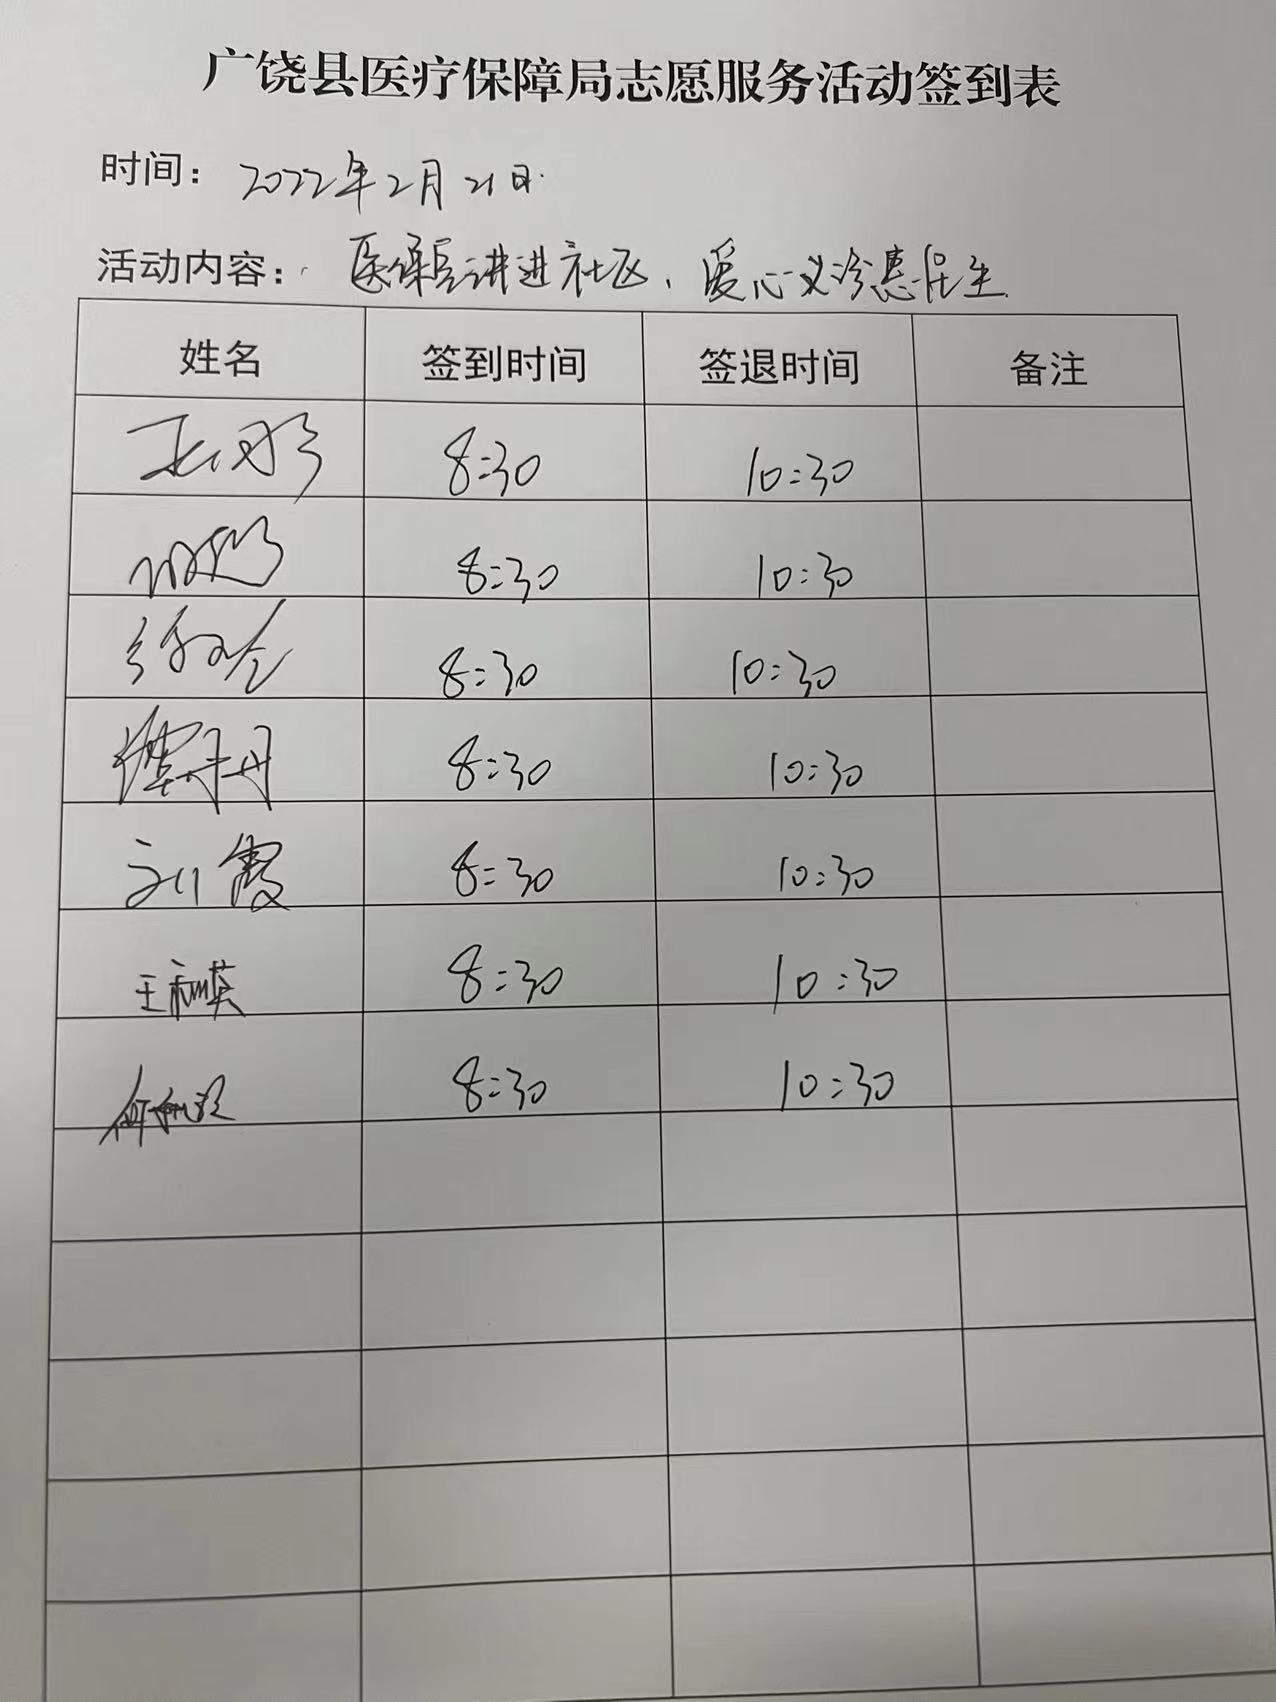 广饶县医疗保障局志愿服务活动签到表
时间：2022年2月21日
活动内容：医保宣讲进社区，爱心义诊惠民生
姓名 签到时间 签退时间 备注
8:30 10:30
8:30 10:30
8:30 10:30
8:30 10:30
刘霞 8:30 10:30
王 8:30 10:30
何 8:30 10:30